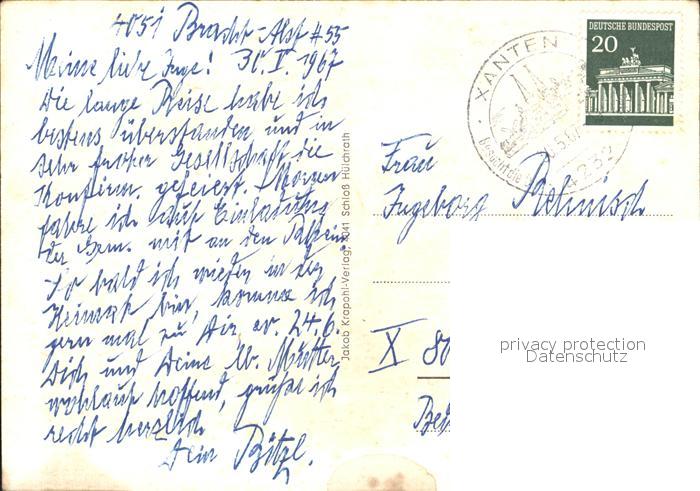 4051 Bracht-Alst #55
Meine liebe Inge! 31. V. 1967
Die lange Reise habe ich
bestens überstanden und in
sehr froher Gesellschaft die
Konfirm. gefeiert. Morgen
fahre ich auf Einladung
der Gem. mit an den
So bald ich wieder in der
Heimat bin, komme ich
gern mal zu Dir, ev. 24.6.
Dich und Deine lb. Mutter
wohlauf hoffend, grüße ich
recht herzlich
Dein
Jakob Krapohl-Verlag, 4041 Schloß Hülchrath
XANTEN
4232
DEUTSCHE BUNDESPOST
20
Frau
Ingeborg
X 80
privacy protection
Datenschutz